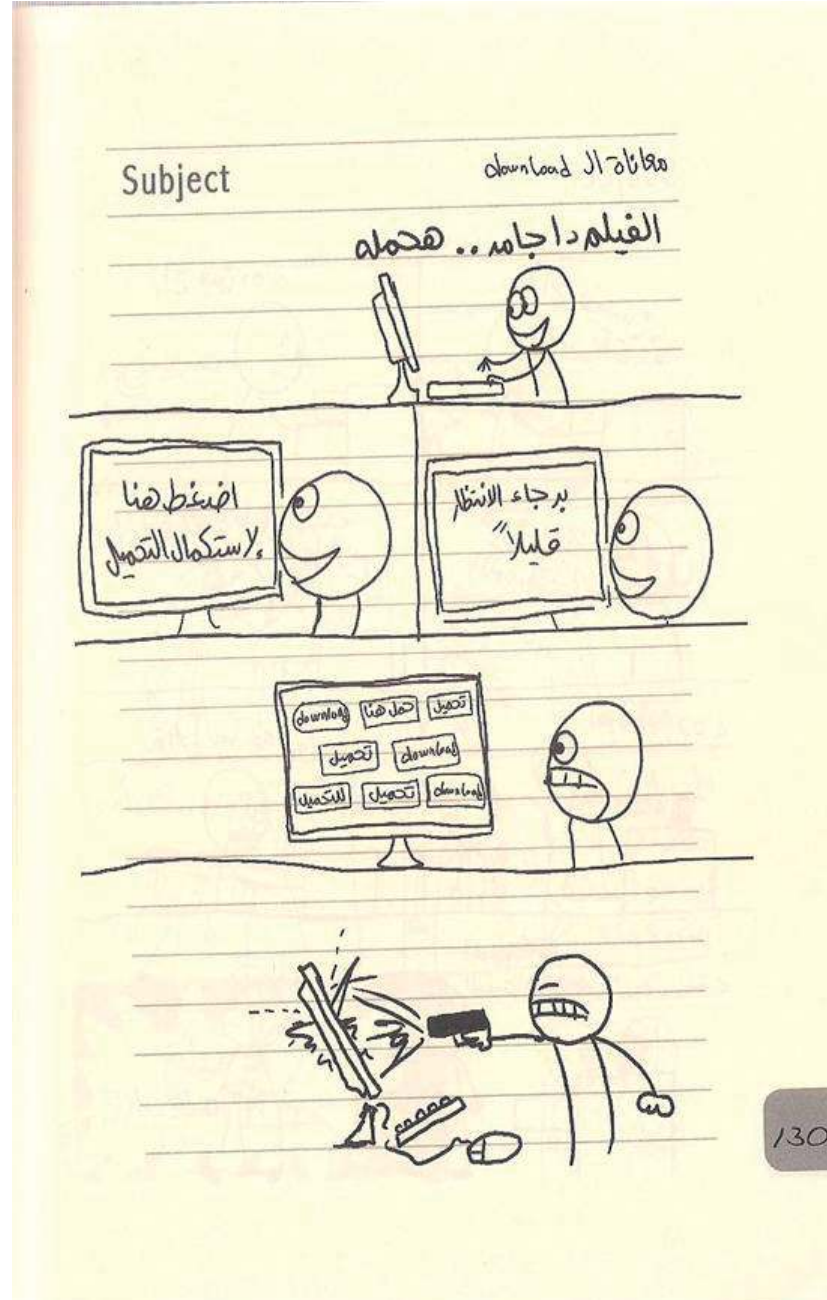 Subject
معاناة ال download
الفيلم دا جامد .. هحمله
برجاء الانتظار
قليلاً
اضغط هنا
لاستكمال التحميل
تحميل
حمل هنا
download
download
تحميل
download
تحميل
للتحميل
130